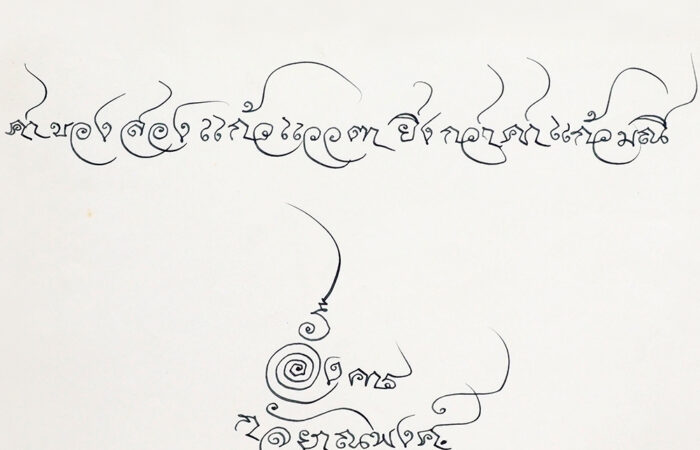 ค่าของสองแก้วแววตา ยิ่งกว่าค่าแก้วมณี
อังคาร
กัลยาณพงศ์